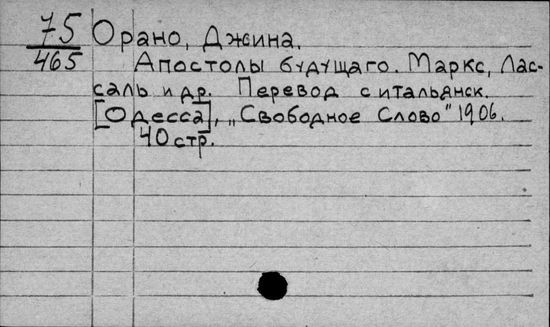 75 Орано, Джина.
465 Апостолы будущаго. Маркс, Лас-
саль и др. Перевод с итальянск.
[Одесса], „Свободное Слово" 1906.
40 стр.